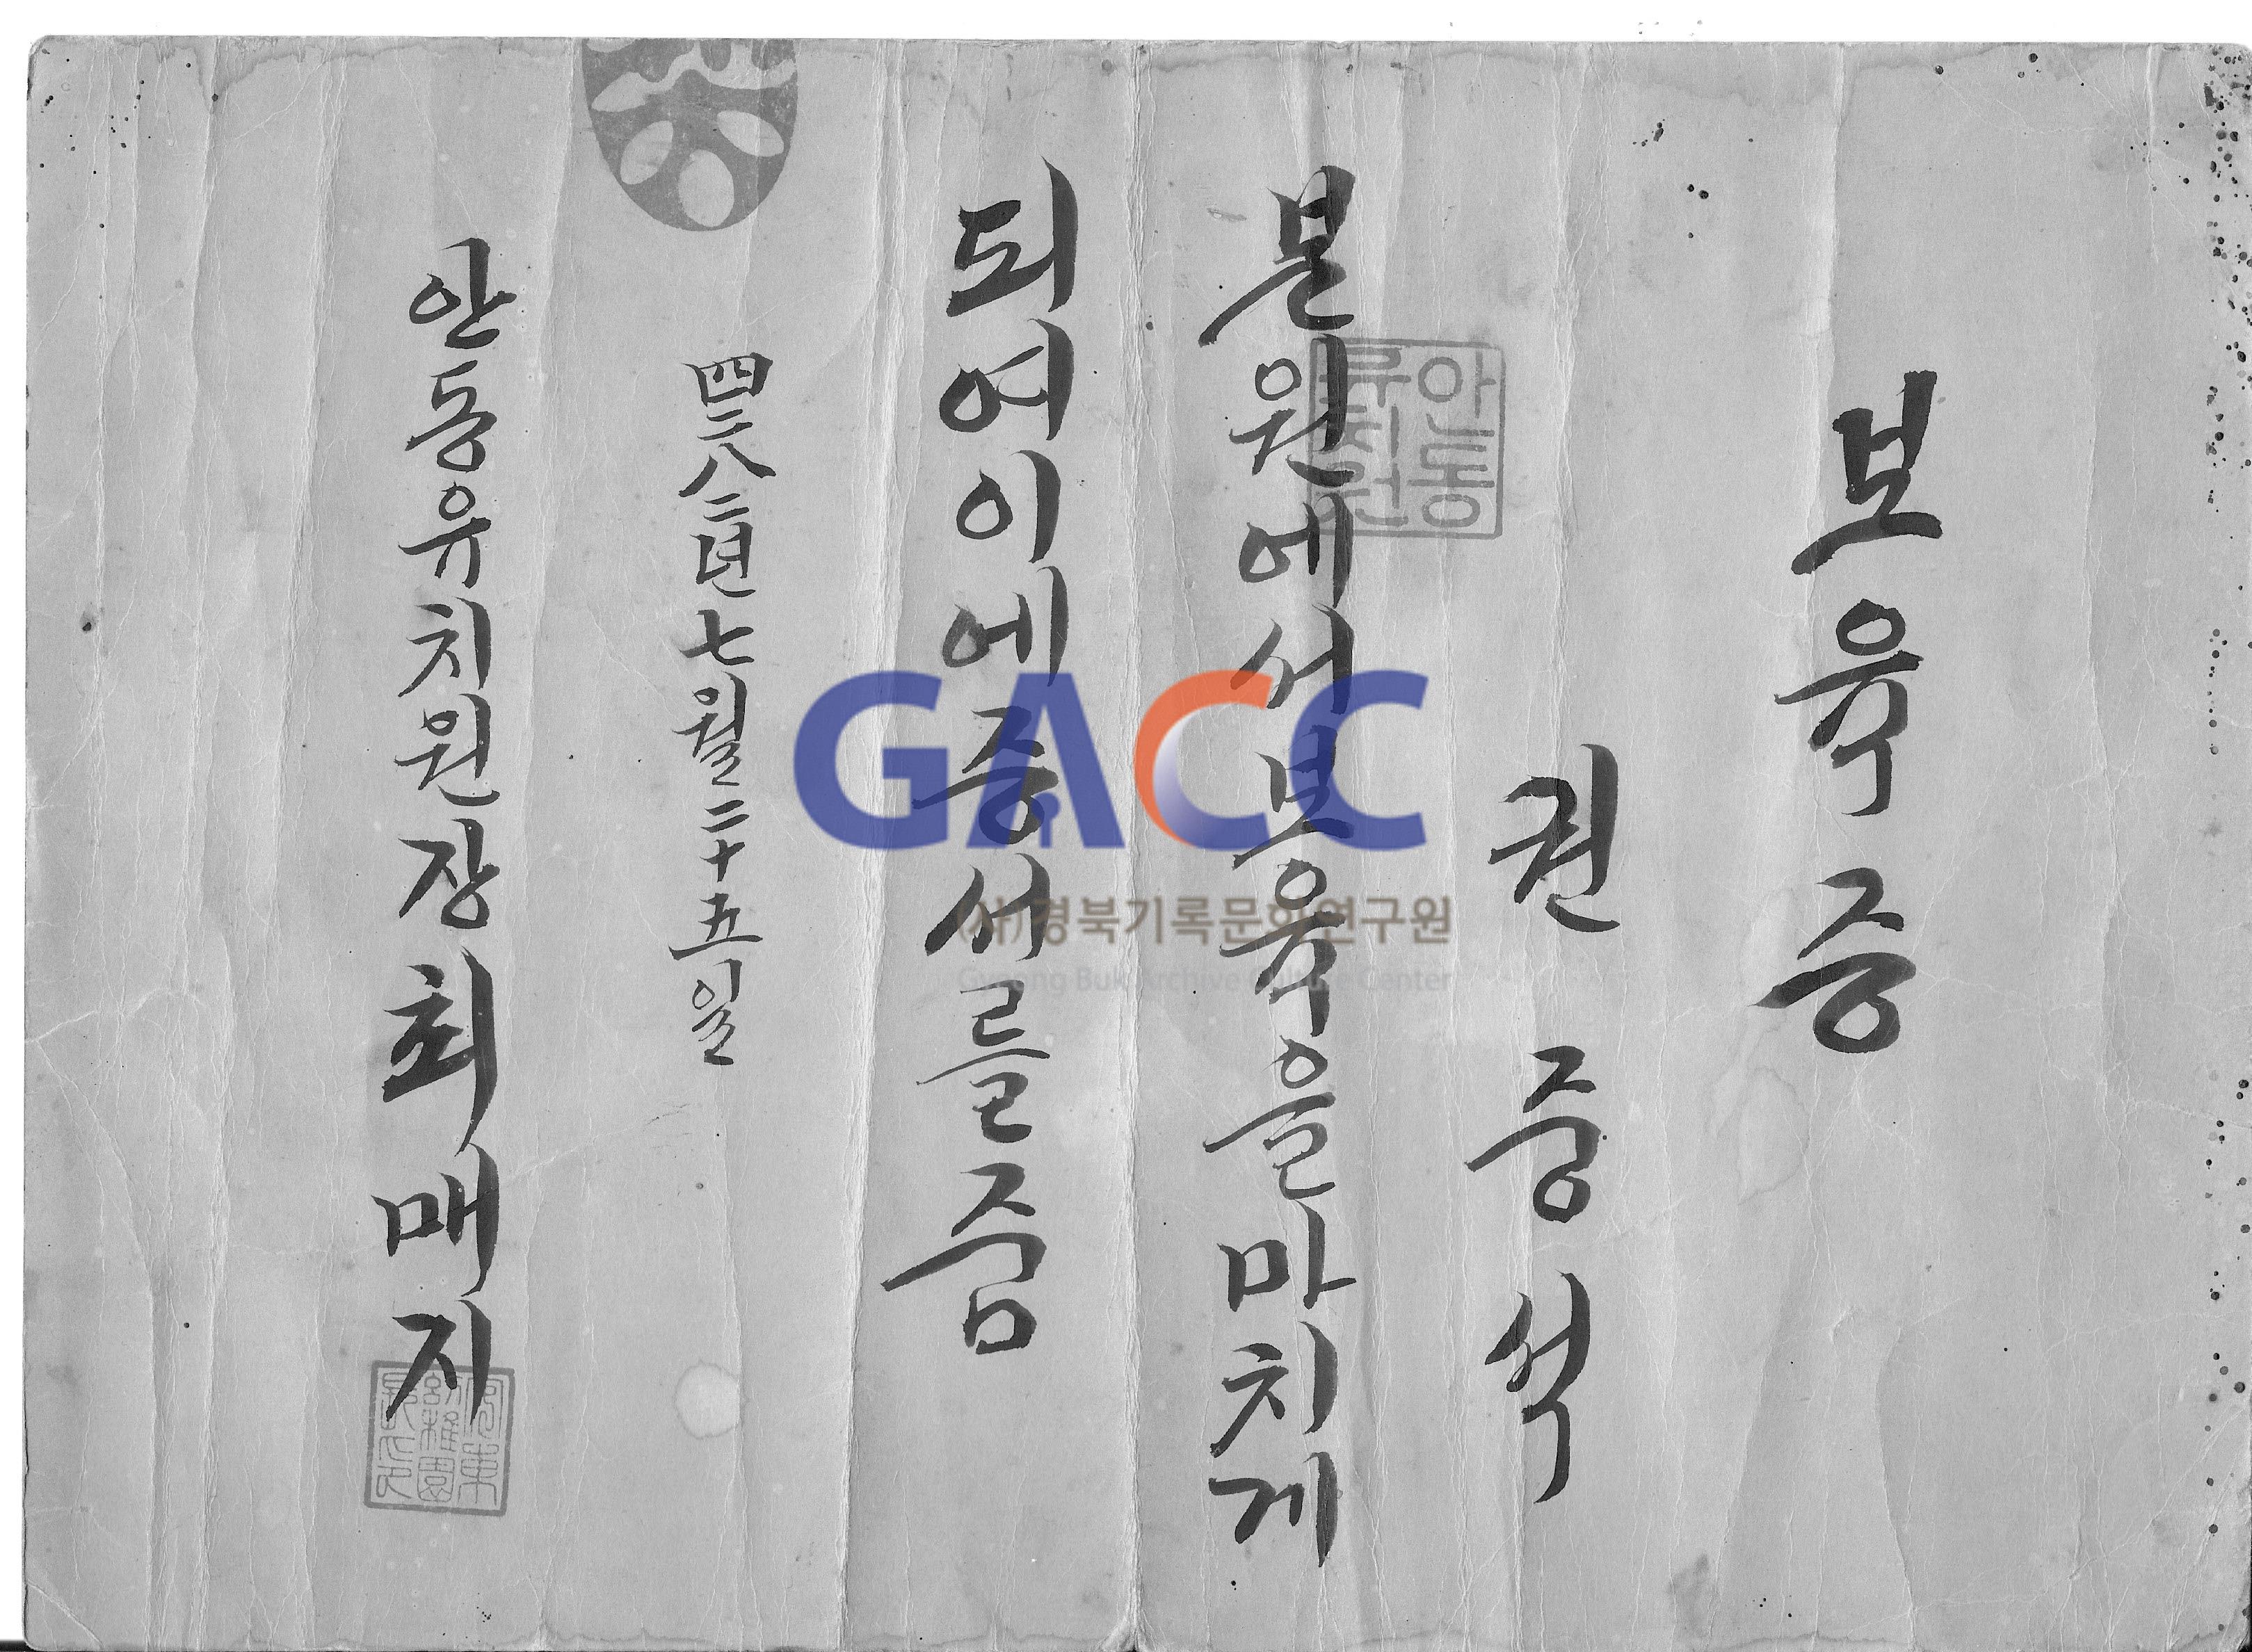 보육증
권중석
본원에서보육을마치게
되여이에증서를줌
四二八二년七월二十五일
안동유치원장최매지
안동
류치원
安東
幼稚園
長印
GACC
(사)경북기록문화연구원
Gyeong Buk Archive Culture Center